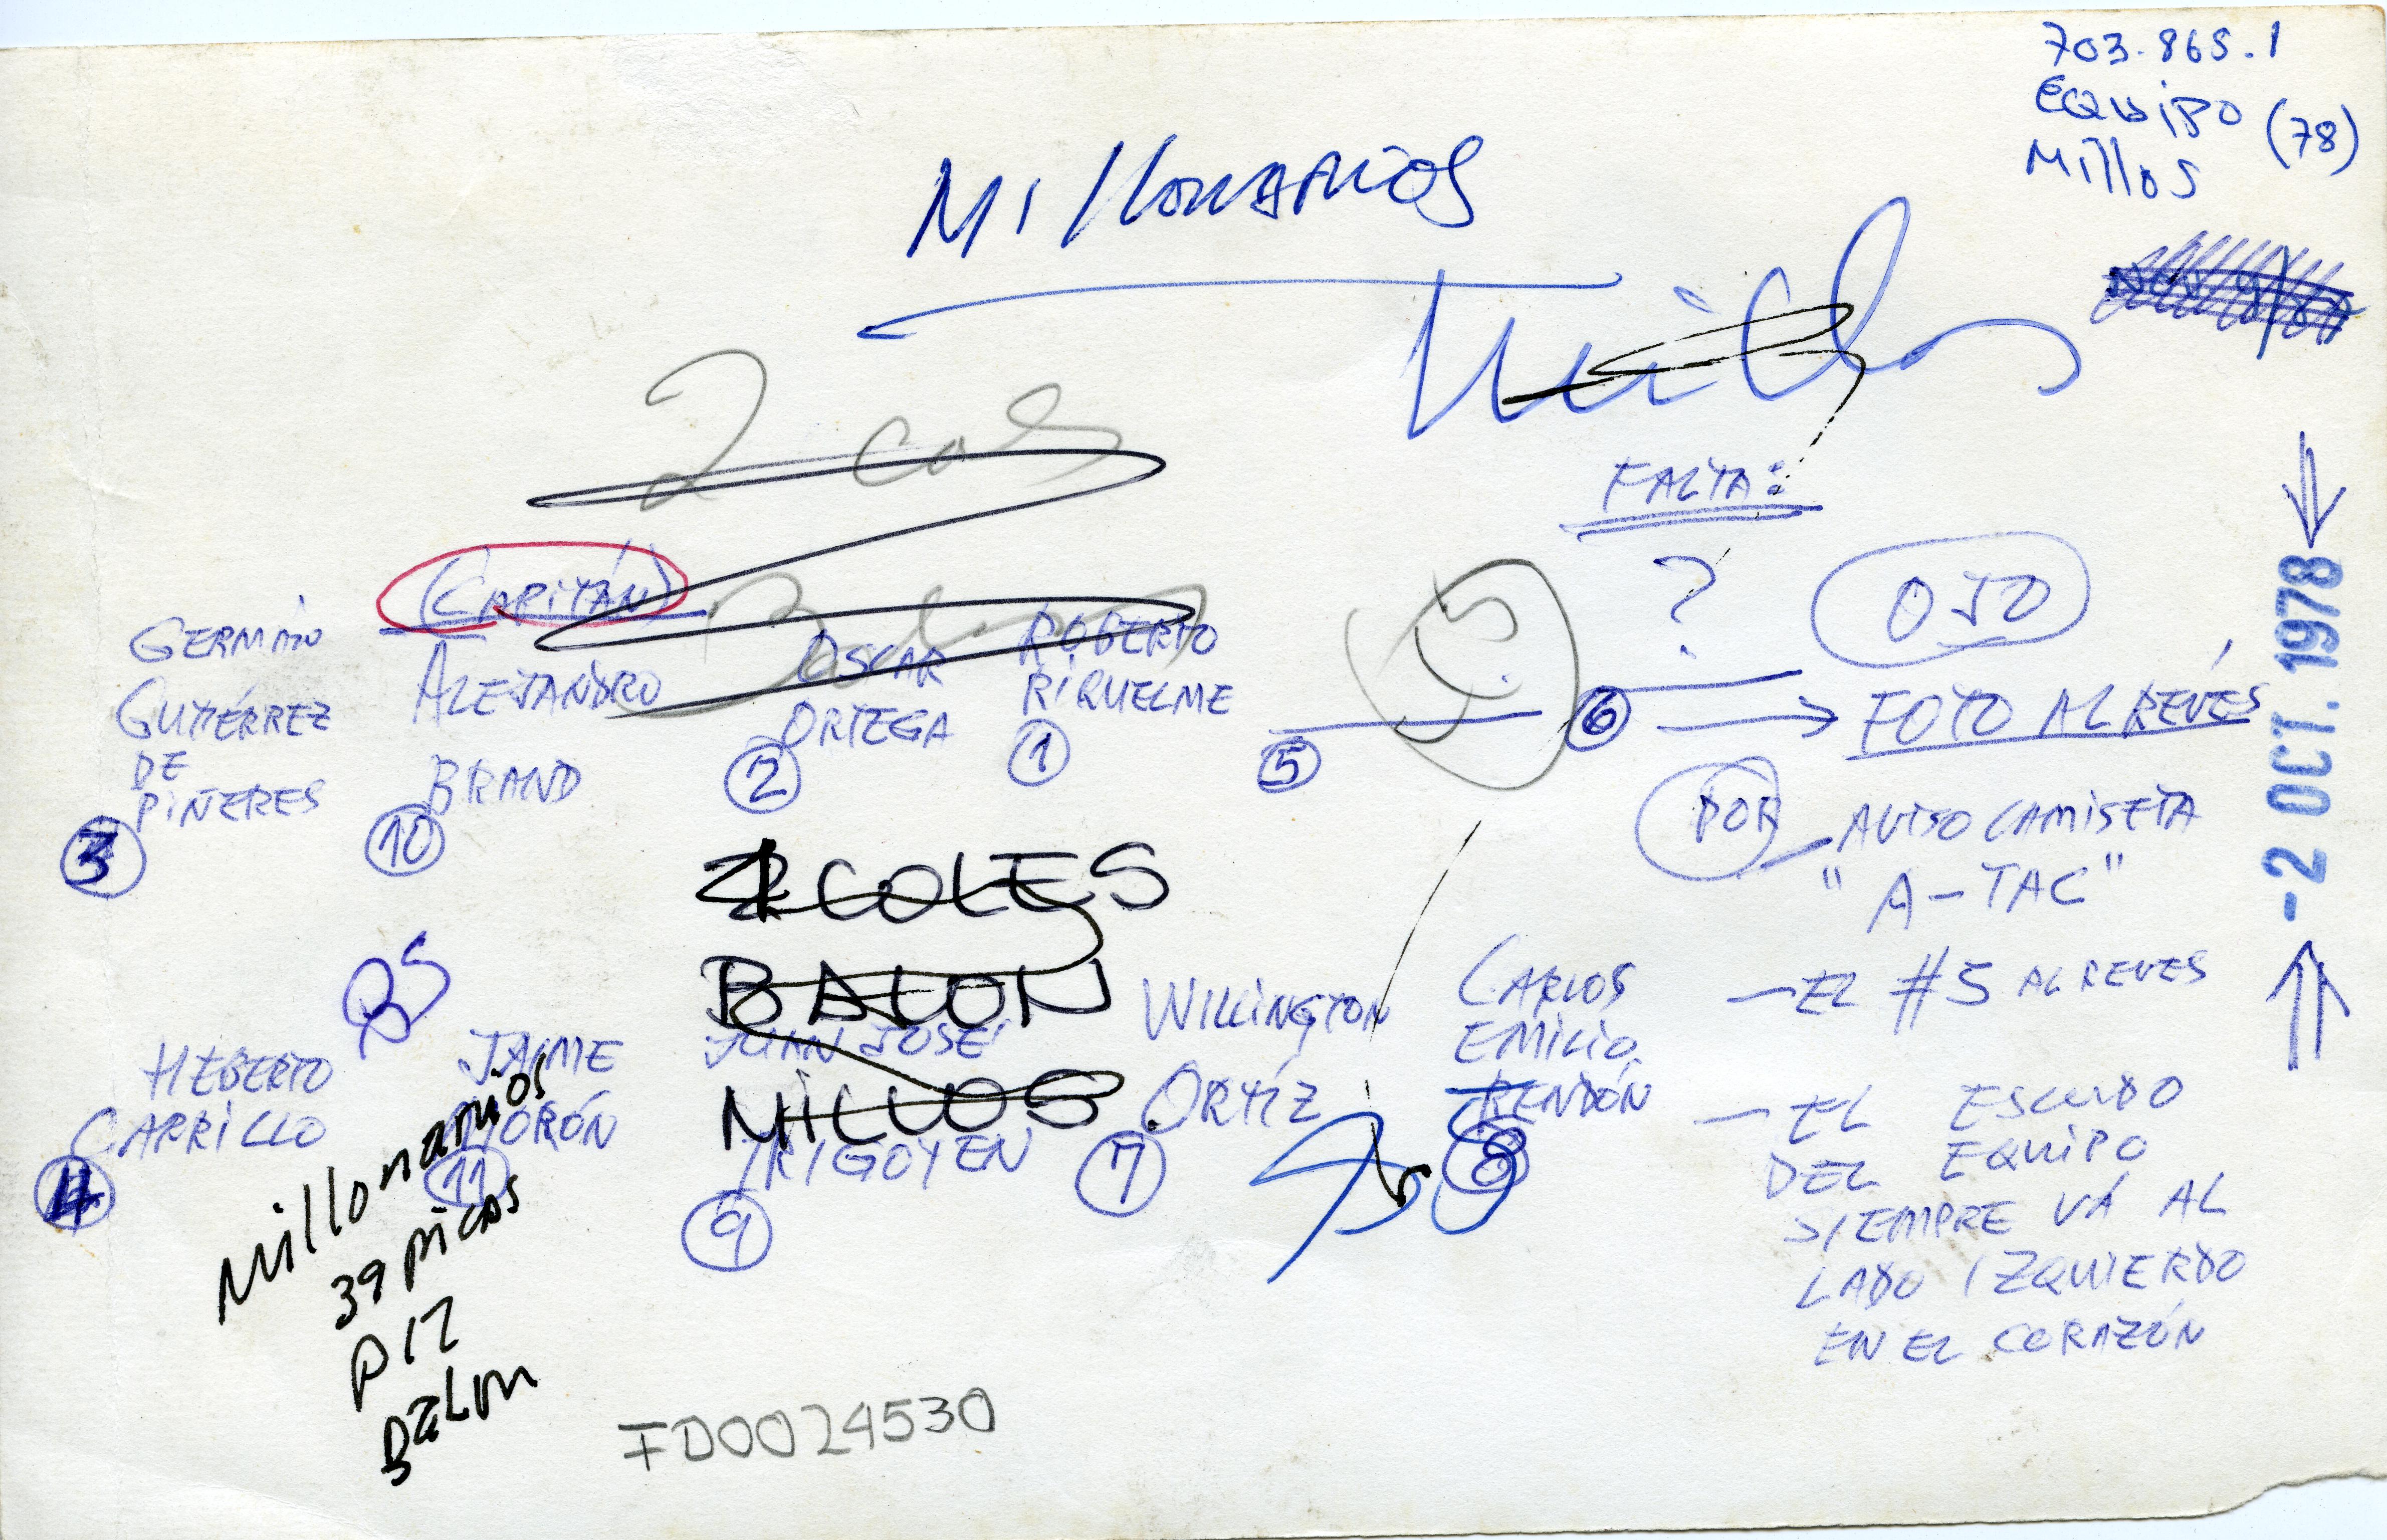 703.865.1
EQUIPO (78)
Millos
Millonarios
Millos
2 cols
FALTA:
?
OJO
(CAPITÁN)
GERMÁN
GUTIÉRREZ
DE
PIÑERES
3
ALEJANDRO
BRAND
10
OSCAR
ORTEGA
2
ROBERTO
RIQUELME
1
5
6
FOTO AL REVÉS
POR
AVISO CAMISETA
"A-TAC"
- EL #5 AL REVES
- EL ESCUDO
DEL EQUIPO
SIEMPRE VÁ AL
LADO IZQUIERDO
EN EL CORAZÓN
-2 OCT. 1978
COLES
BALON
MILLOS
HEBERTO
CARRILLO
4
JAIME
MORÓN
11
JUAN JOSÉ
IRIGOYEN
9
WILLINGTON
ORTÍZ
7
CARLOS
EMILIO
RENDÓN
8
Millonarios
39 picas
P12
Balon
FD0024530